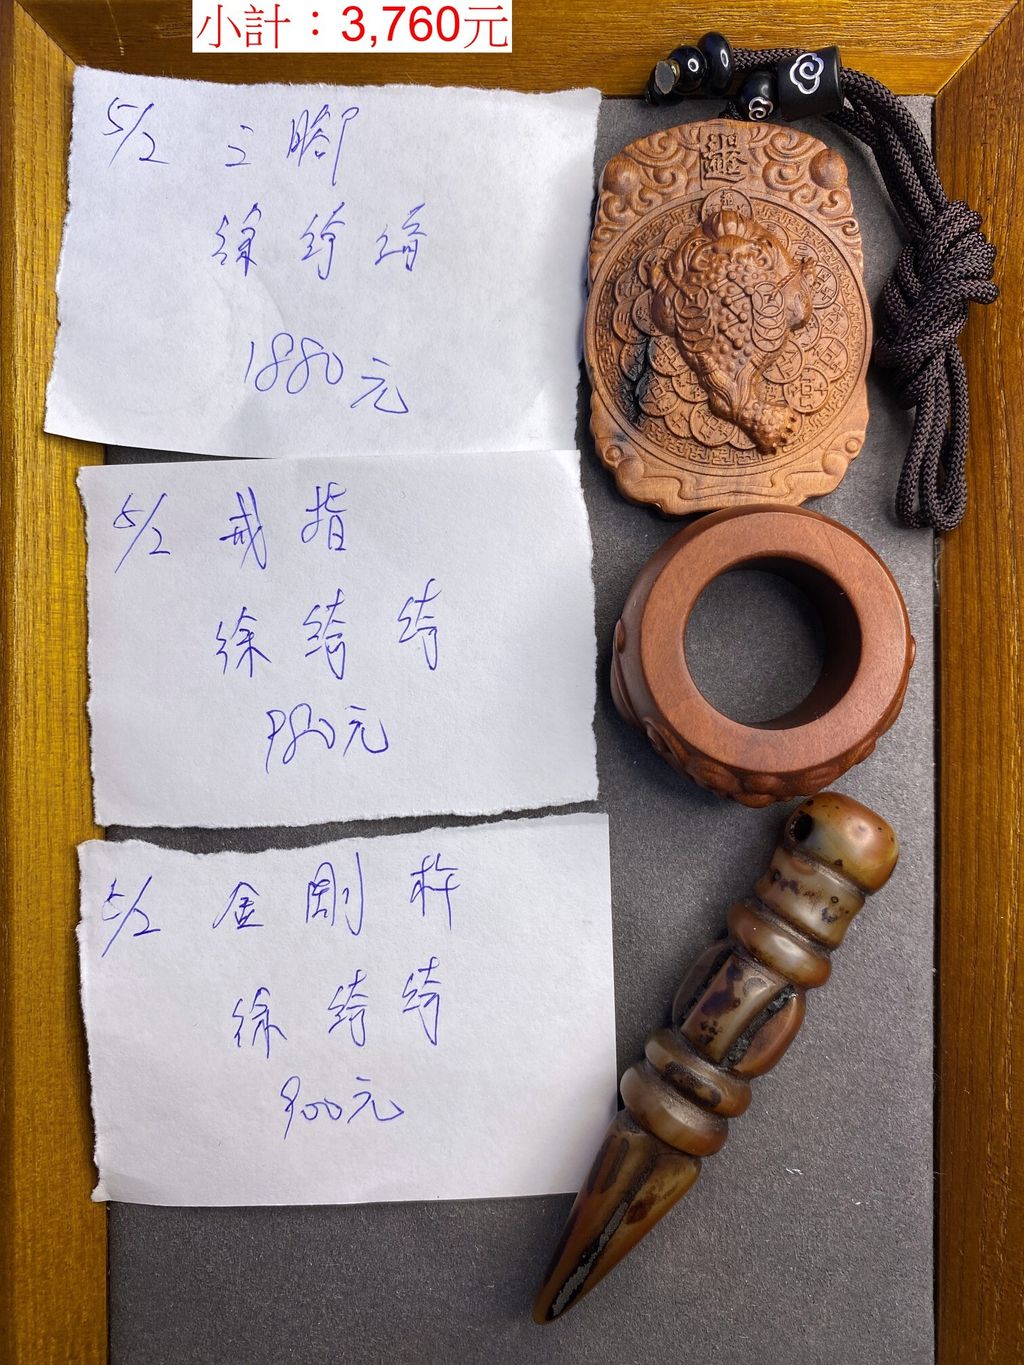 小計：3,760元
5/2 三腳
徐綺綺
1880元
5/2 戒指
徐綺綺
980元
5/2 金剛杵
徐綺綺
900元